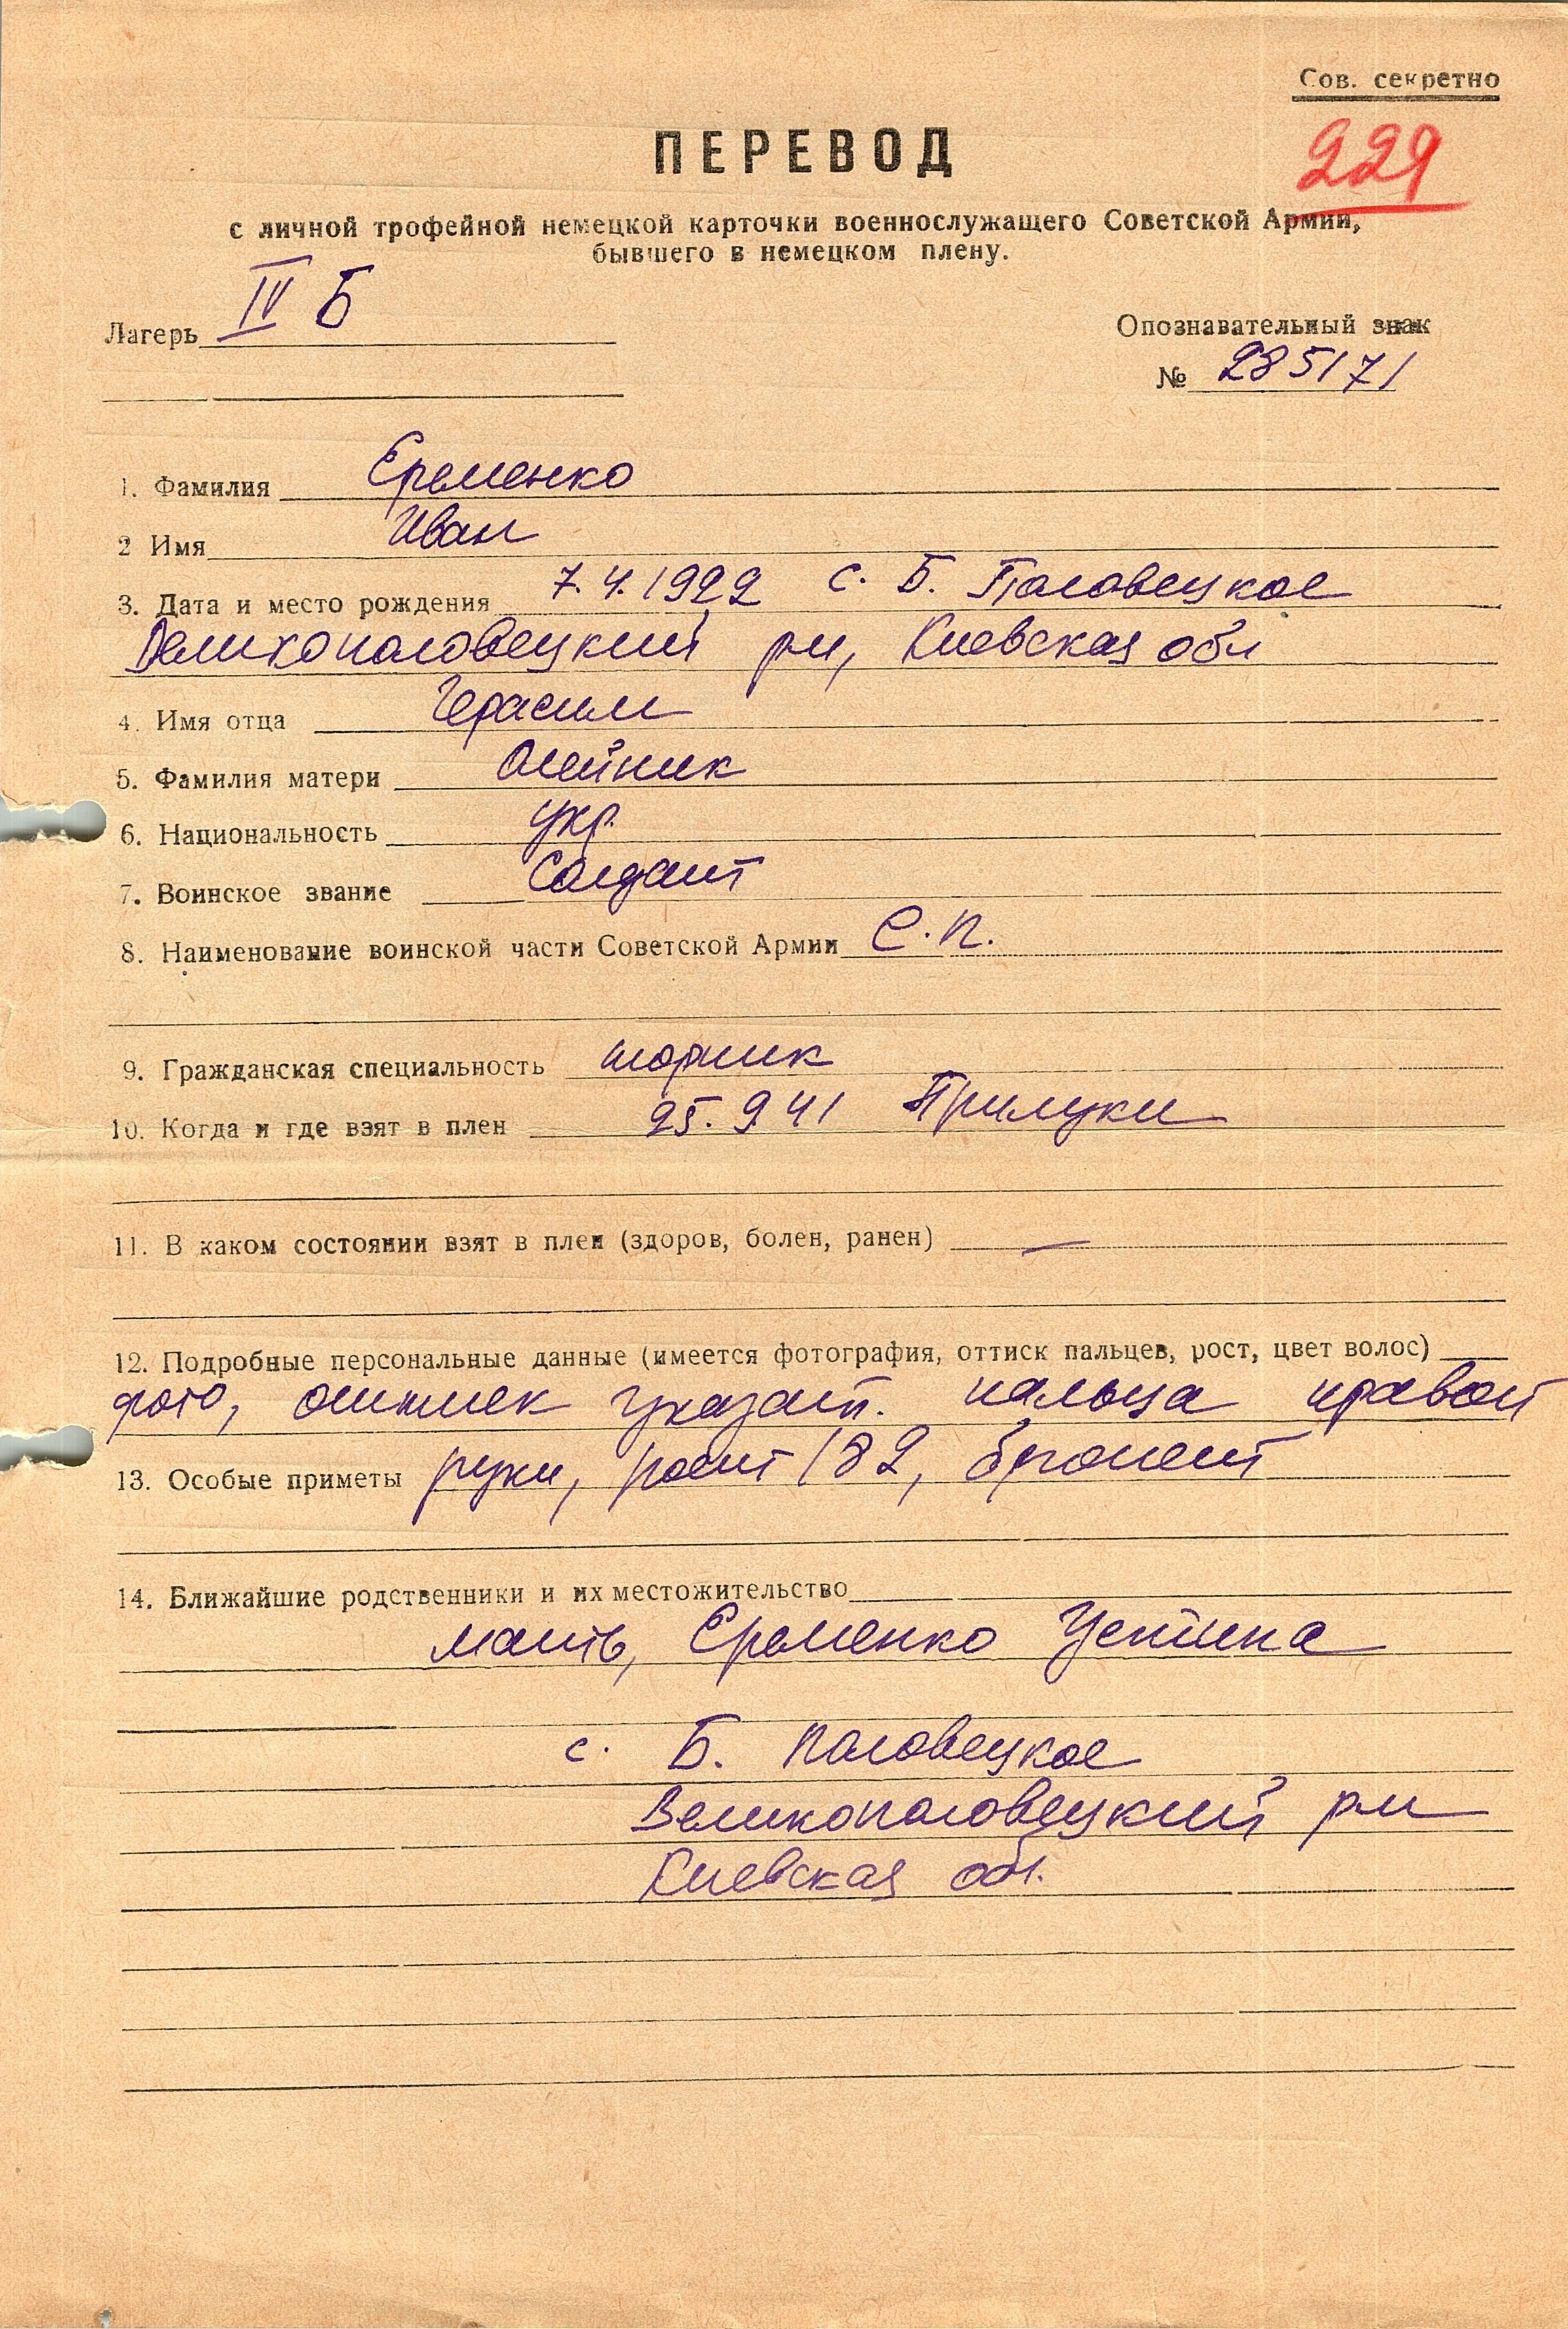 Сов. секретно
229
ПЕРЕВОД
с личной трофейной немецкой карточки военнослужащего Советской Армии,
бывшего в немецком плену.
Лагерь IV Б
Опознавательный знак
№ 285171
1. Фамилия Еременко
2 Имя Иван
3. Дата и место рождения 7.4.1922 с. Б. Половецкое
Великополовецкий рн, Киевская обл
4. Имя отца Герасим
5. Фамилия матери Олейник
6. Национальность укр.
7. Воинское звание Солдат
8. Наименование воинской части Советской Армии С.П.
9. Гражданская специальность шорник
10. Когда и где взят в плен 25.9.41 Прилуки
11. В каком состоянии взят в плен (здоров, болен, ранен) —
12. Подробные персональные данные (имеется фотография, оттиск пальцев, рост, цвет волос)
фото, оттиск указат. пальца правой
13. Особые приметы руки, рост 182, брюнет
14. Ближайшие родственники и их местожительство
мать, Еременко Устина
с. Б. Половецкое
Великополовецкий рн
Киевская обл.